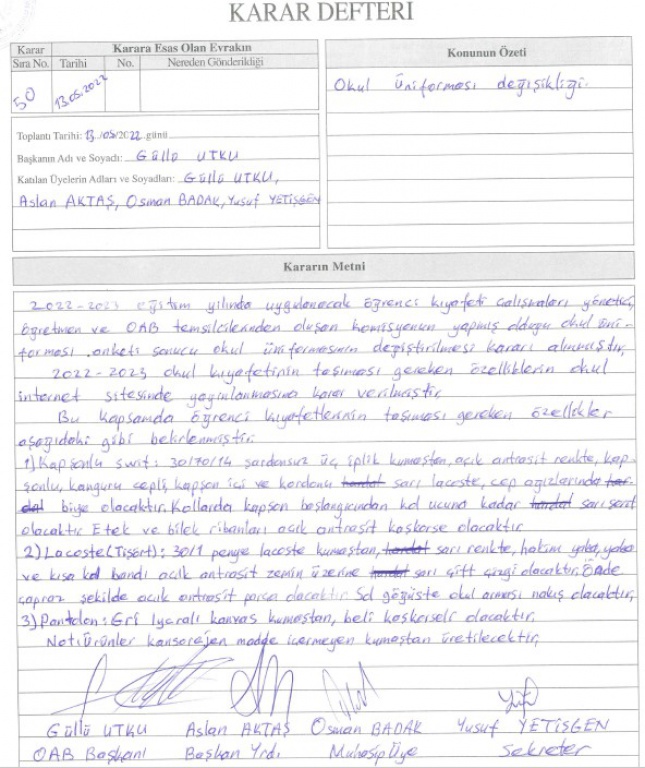 KARAR DEFTERİ
Karar
Sıra No.
Karara Esas Olan Evrakın
Tarihi No. Nereden Gönderikliği
50 13.05.2022
Konunun Özeti
Okul Üniforması değişikliği.
Toplantı Tarihi: 13/05/2022 günü
Başkanın Adı ve Soyadı: Güllü UTKU
Katılan Üyelerin Adları ve Soyadları: Güllü UTKU,
Aslan AKTAŞ, Osman BADAK, Yusuf YETİŞGEN
Kararın Metni
2022-2023 eğitim yılında uygulanacak öğrenci kıyafeti çalışmaları yönetici,
öğretmen ve OAB temsilcilerinden oluşan komisyonun yapmış olduğu okul üni-
forması anketi sonucu okul üniformasının değiştirilmesi kararı alınmıştır.
2022-2023 okul kıyafetinin taşıması gereken özelliklerin okul
internet sitesinde yayınlanmasına karar verilmiştir.
Bu kapsamda öğrenci kıyafetlerinin taşıması gereken özellikler
aşağıdaki gibi belirlenmiştir.
1) Kapşonlu swit: 30/70/14 şardonsuz üç iplik kumaştan, açık antrasit renkte, kap-
şonlu, kanguru cepli, kapşon içi ve kordonu hardal sarı lacoste, cep ağızlarında har-
dal biye olacaktır. Kollarda kapşon başlangıcından kol ucuna kadar hardal sarı şerit
olacaktır. Etek ve bilek ribanları açık antrasit kaşkorse olacaktır.
2) Lacoste (Tişört): 30/1 penye lacoste kumaştan, hardal sarı renkte, hakim yaka, yaka
ve kısa kol bandı açık antrasit zemin üzerine hardal sarı çift çizgi olacaktır. Önde
çapraz şekilde açık antrasit parça olacaktır. Sol göğüste okul arması nakış olacaktır.
3) Pantolon: Gri lycralı kanvas kumaştan, beli kaşkorseli olacaktır.
Not: Ürünler kanserojen madde içermeyen kumaştan üretilecektir.
Güllü UTKU Aslan AKTAŞ Osman BADAK Yusuf YETİŞGEN
OAB Başkanı Başkan Yrdı Muhasip Üye Sekreter